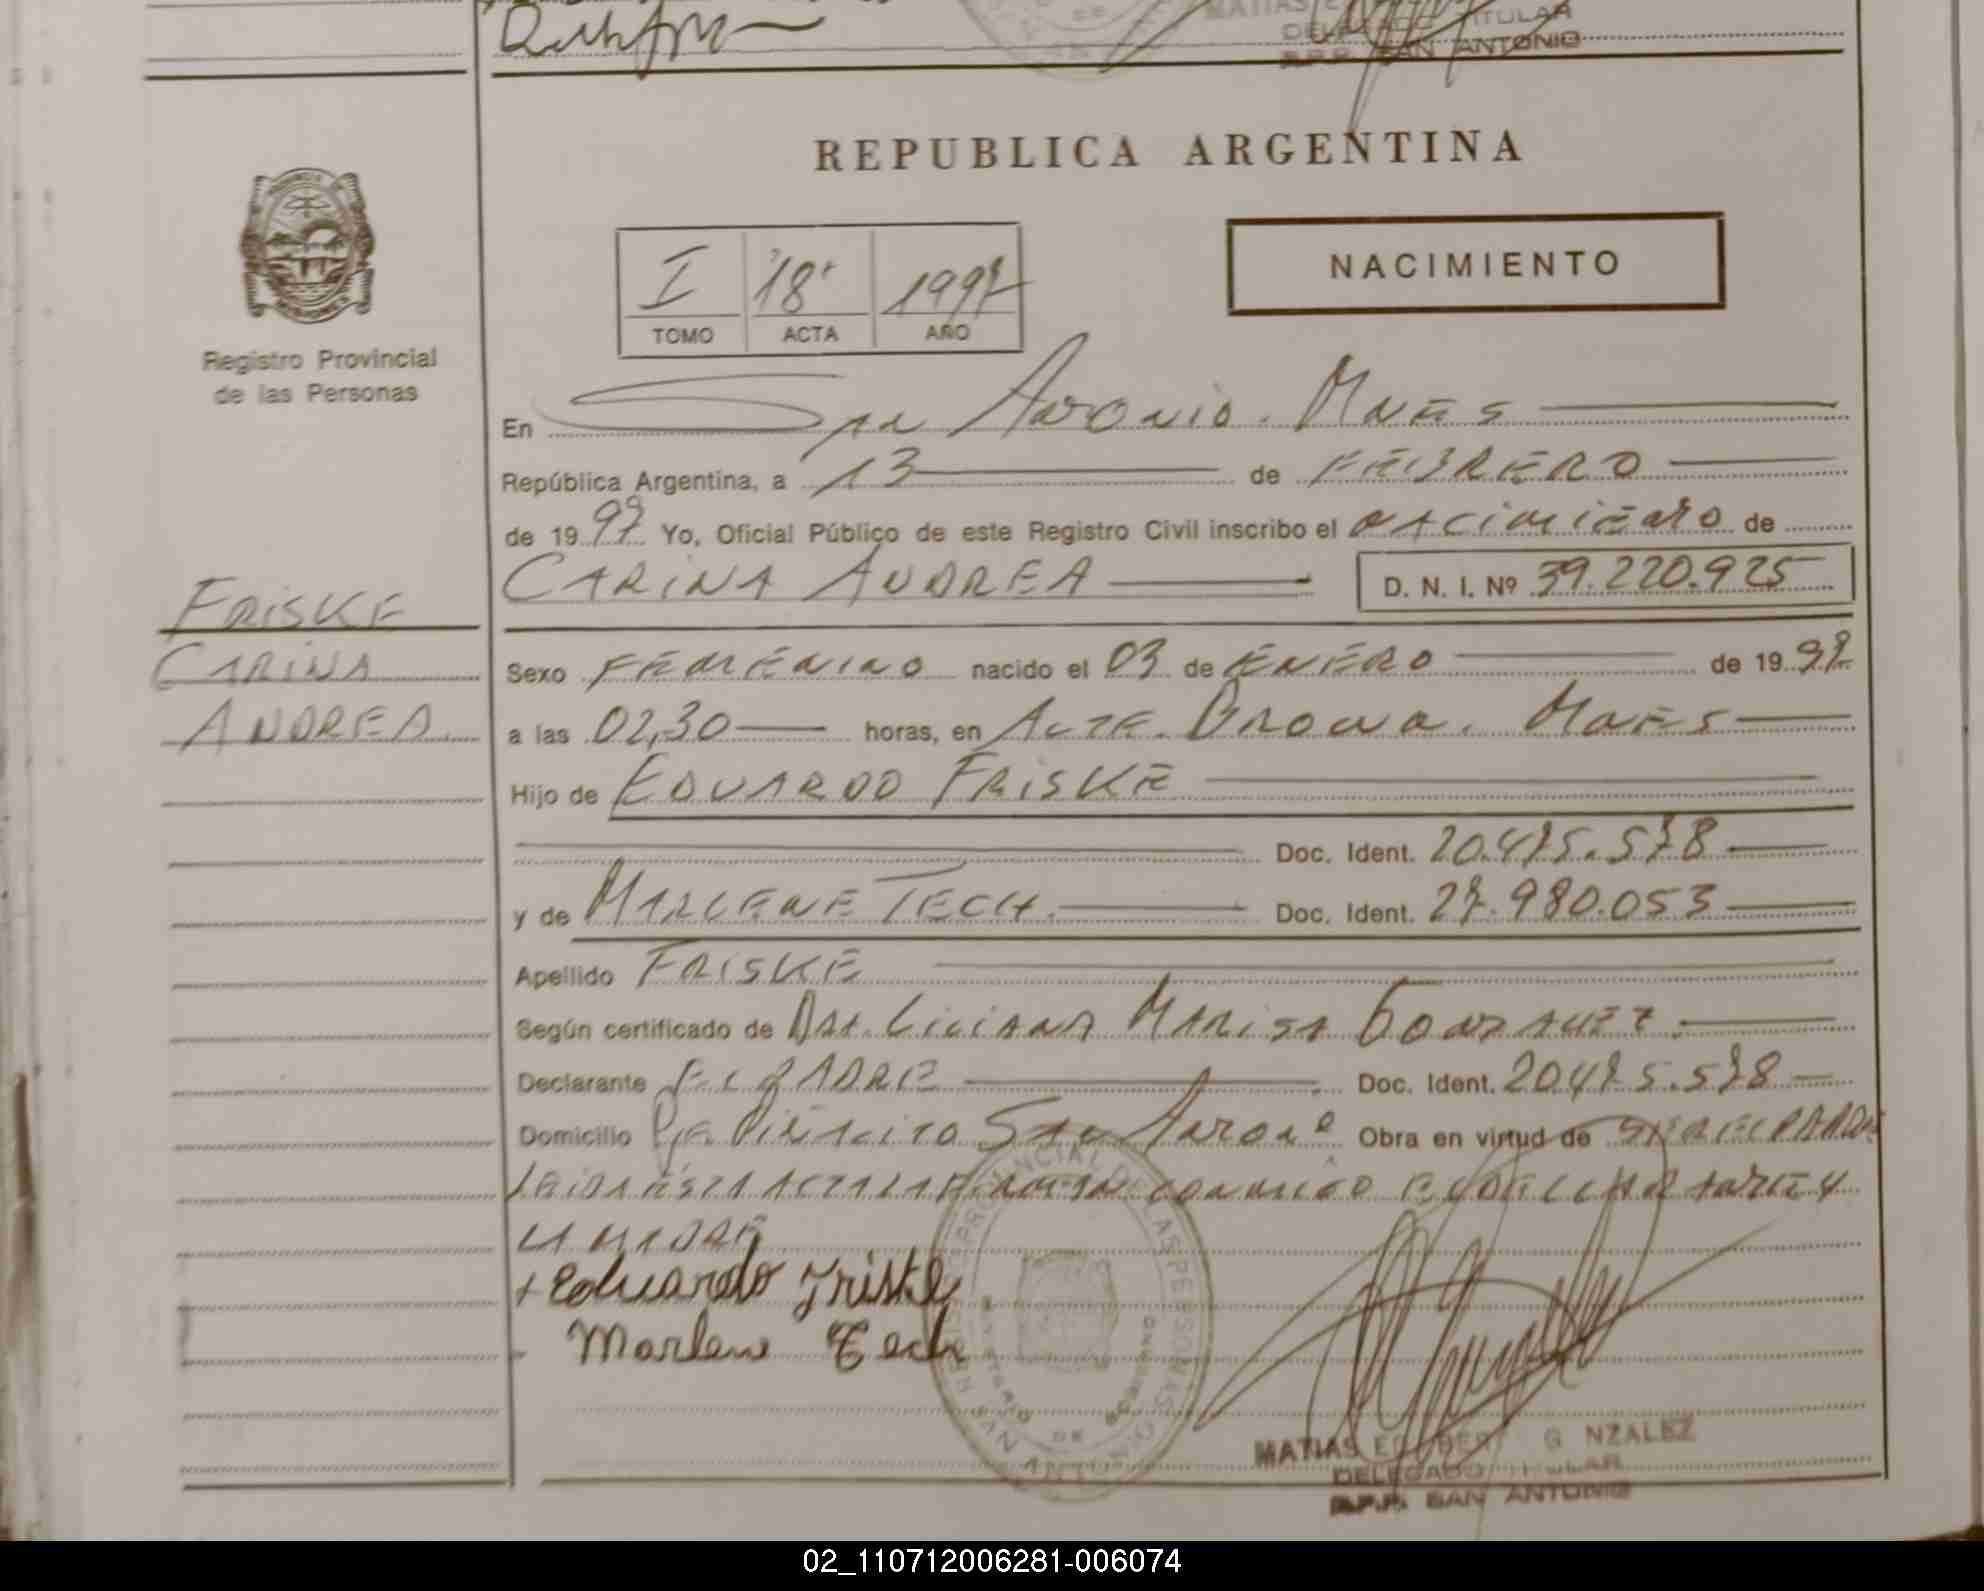 MATIAS E
DELEGADO TITULAR
R.P.P. SAN ANTONIO
REPUBLICA ARGENTINA
I 18 1997
TOMO ACTA AÑO
NACIMIENTO
Registro Provincial
de las Personas
En San Antonio. Mnes
República Argentina, a 13 de FEBRERO
de 1997 Yo, Oficial Público de este Registro Civil inscribo el nacimiento de
CARINA ANDREA D. N. I. Nº 39.220.925
FRISKE
CARINA
ANDREA
Sexo FEMENINO nacido el 03 de ENERO de 1997
a las 02,30 horas, en ALTE. Brown. Mnes
Hijo de EDUARDO FRISKE
Doc. Ident. 20.475.578
y de MARLENE TECH. Doc. Ident. 27.980.053
Apellido FRISKE
Según certificado de Dra. Liliana Marisa Gonzalez.
Declarante EL PADRE Doc. Ident. 20.475.578
Domicilio San Antonio Obra en virtud de
LEIDA ESTA ACTA LA FIRMAN CONMIGO EL DECLARANTE Y
LA MADRE
+ Eduardo Friske
Marlene Tech
REGISTRO PROVINCIAL DE LAS PERSONAS
SAN ANTONIO
DE
MATIAS GONZALEZ
DELEGADO TITULAR
R.P.P. SAN ANTONIO
02_110712006281-006074